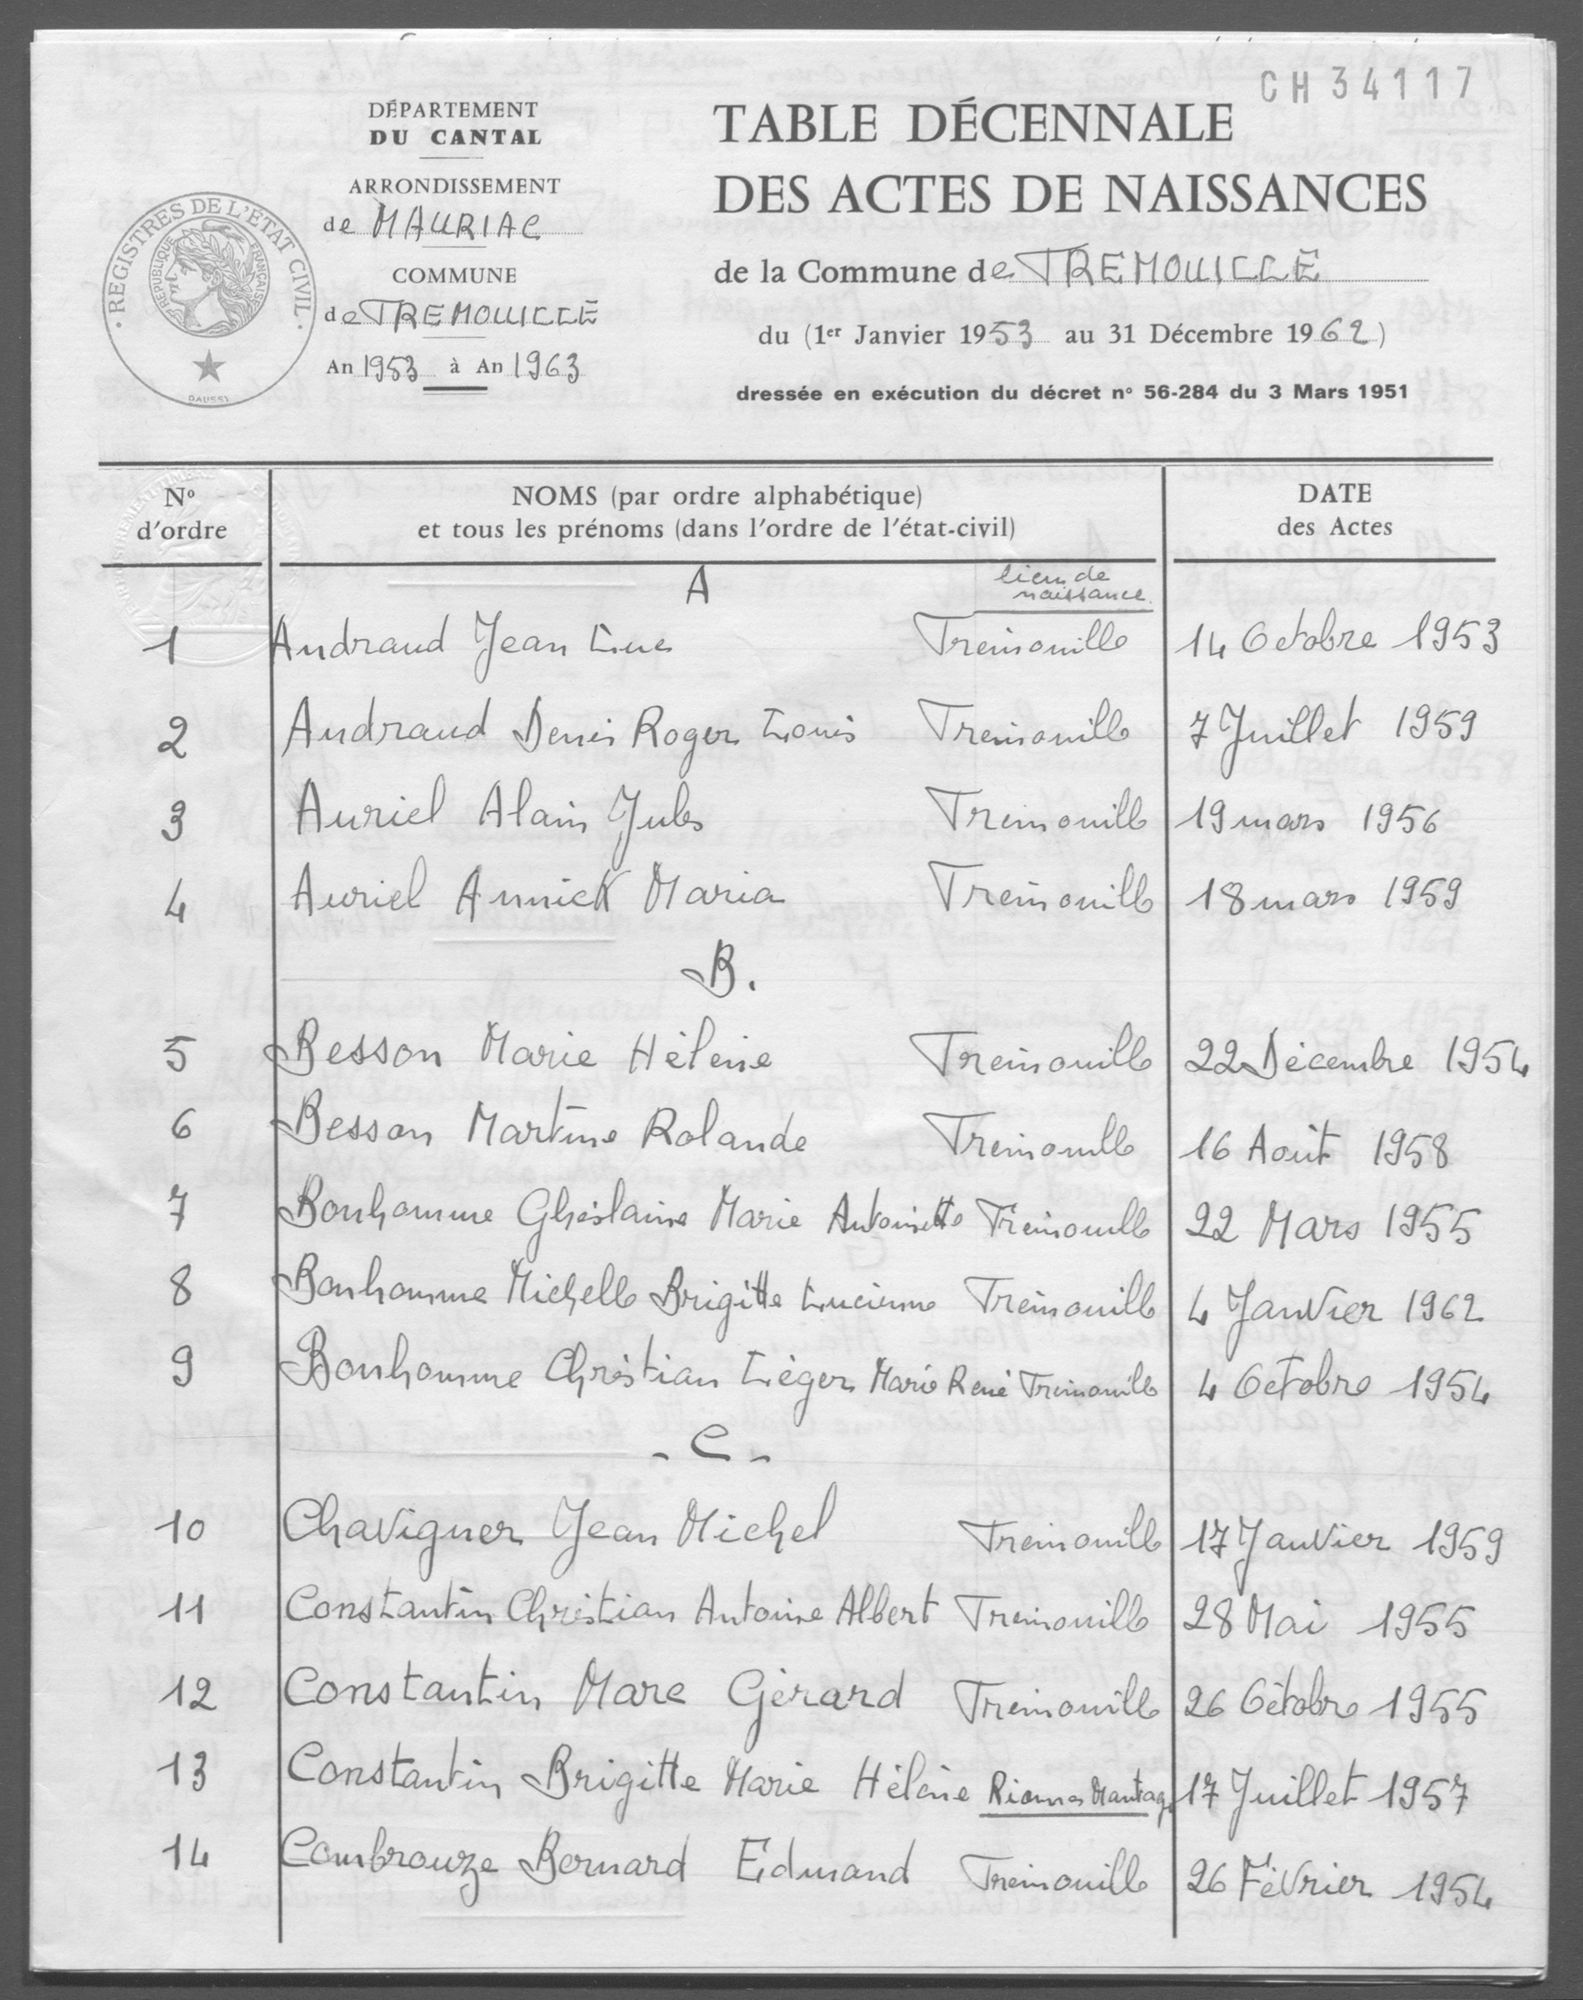 CH34117
DÉPARTEMENT
DU CANTAL
ARRONDISSEMENT
de MAURIAC
COMMUNE
de TREMOUILLE
An 1953 à An 1963
REGISTRES DE L'ÉTAT CIVIL
RÉPUBLIQUE FRANÇAISE
TABLE DÉCENNALE
DES ACTES DE NAISSANCES
de la Commune de TREMOUILLE
du (1er Janvier 1953 au 31 Décembre 1962)
dressée en exécution du décret no 56-284 du 3 Mars 1951
No d'ordre
NOMS (par ordre alphabétique)
et tous les prénoms (dans l'ordre de l'état-civil)
DATE
des Actes
A
lieu de
naissance
1 Andraud Jean Luc Tremouille 14 Octobre 1953
2 Andraud Denis Roger Louis Tremouille 7 Juillet 1959
3 Auriel Alain Jules Tremouille 19 mars 1956
4 Auriel Annick Maria Tremouille 18 mars 1959
B.
5 Besson Marie Hélène Tremouille 22 Décembre 1954
6 Besson Martine Rolande Tremouille 16 Août 1958
7 Bonhomme Ghislaine Marie Antoinette Tremouille 22 Mars 1955
8 Bonhomme Michelle Brigitte Lucienne Tremouille 4 Janvier 1962
9 Bonhomme Christian Léger Marie René Tremouille 4 Octobre 1954
- C -
10 Chavigner Jean Michel Tremouille 17 Janvier 1959
11 Constantin Christian Antoine Albert Tremouille 28 Mai 1955
12 Constantin Marc Gérard Tremouille 26 Octobre 1955
13 Constantin Brigitte Marie Hélène Riom es Montag. 17 Juillet 1957
14 Combrouze Bernard Edmond Tremouille 26 Février 1954